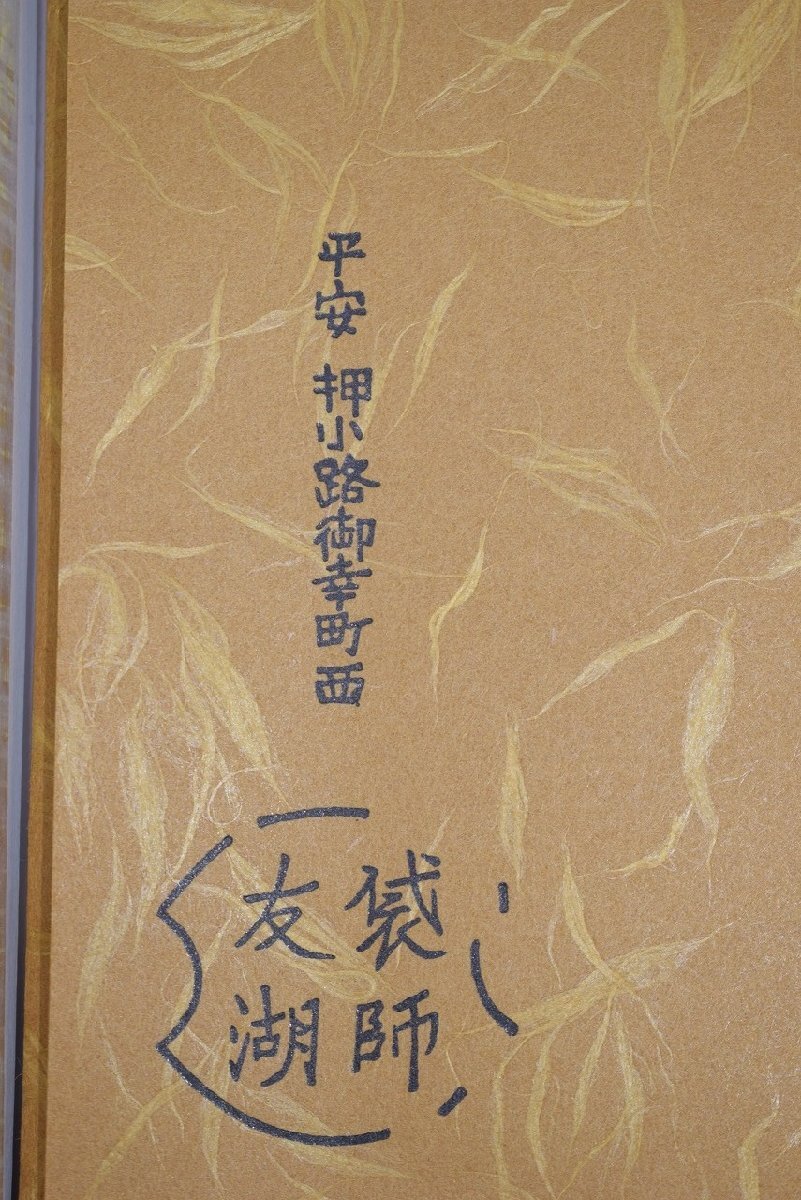 平安 押小路御幸町西
袋師
友湖